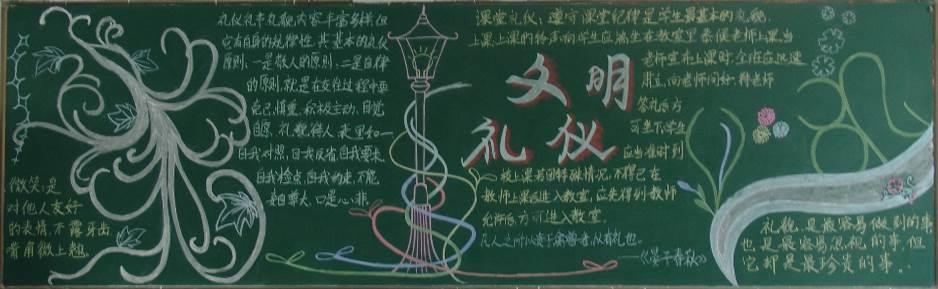 微笑,是
对他人友好
的表情,不露牙齿
嘴角微上翘.
礼仪礼节礼貌内容丰富多样,但
它有自身的规律性,其基本的礼仪
原则:一是敬人的原则;二是自律
的原则,就是在交往过程中要
克己,慎重,积极主动,自觉
自愿,礼貌待人,表里如一
自我对照,自我反省,自我要求,
自我检点,自我约束,不能
妄自尊大,口是心非.
文明
礼仪
课堂礼仪:遵守课堂纪律是学生最基本的礼貌.
上课:上课的铃声响,学生应端坐在教室里,恭候老师上课,当
老师宣布上课时,全班应迅速
肃立,向老师问好,待老师
答礼后,方
可坐下.学生
应当准时到
校上课,若因特殊情况,不得已在
教师上课后进入教室,应先得到教师
允许后,方可进入教室.
凡人之所以贵于禽兽者,以有礼也.
——《晏子春秋》
礼貌,是最容易做到的事
也是最容易忽视的事,但
它却是最珍贵的事..